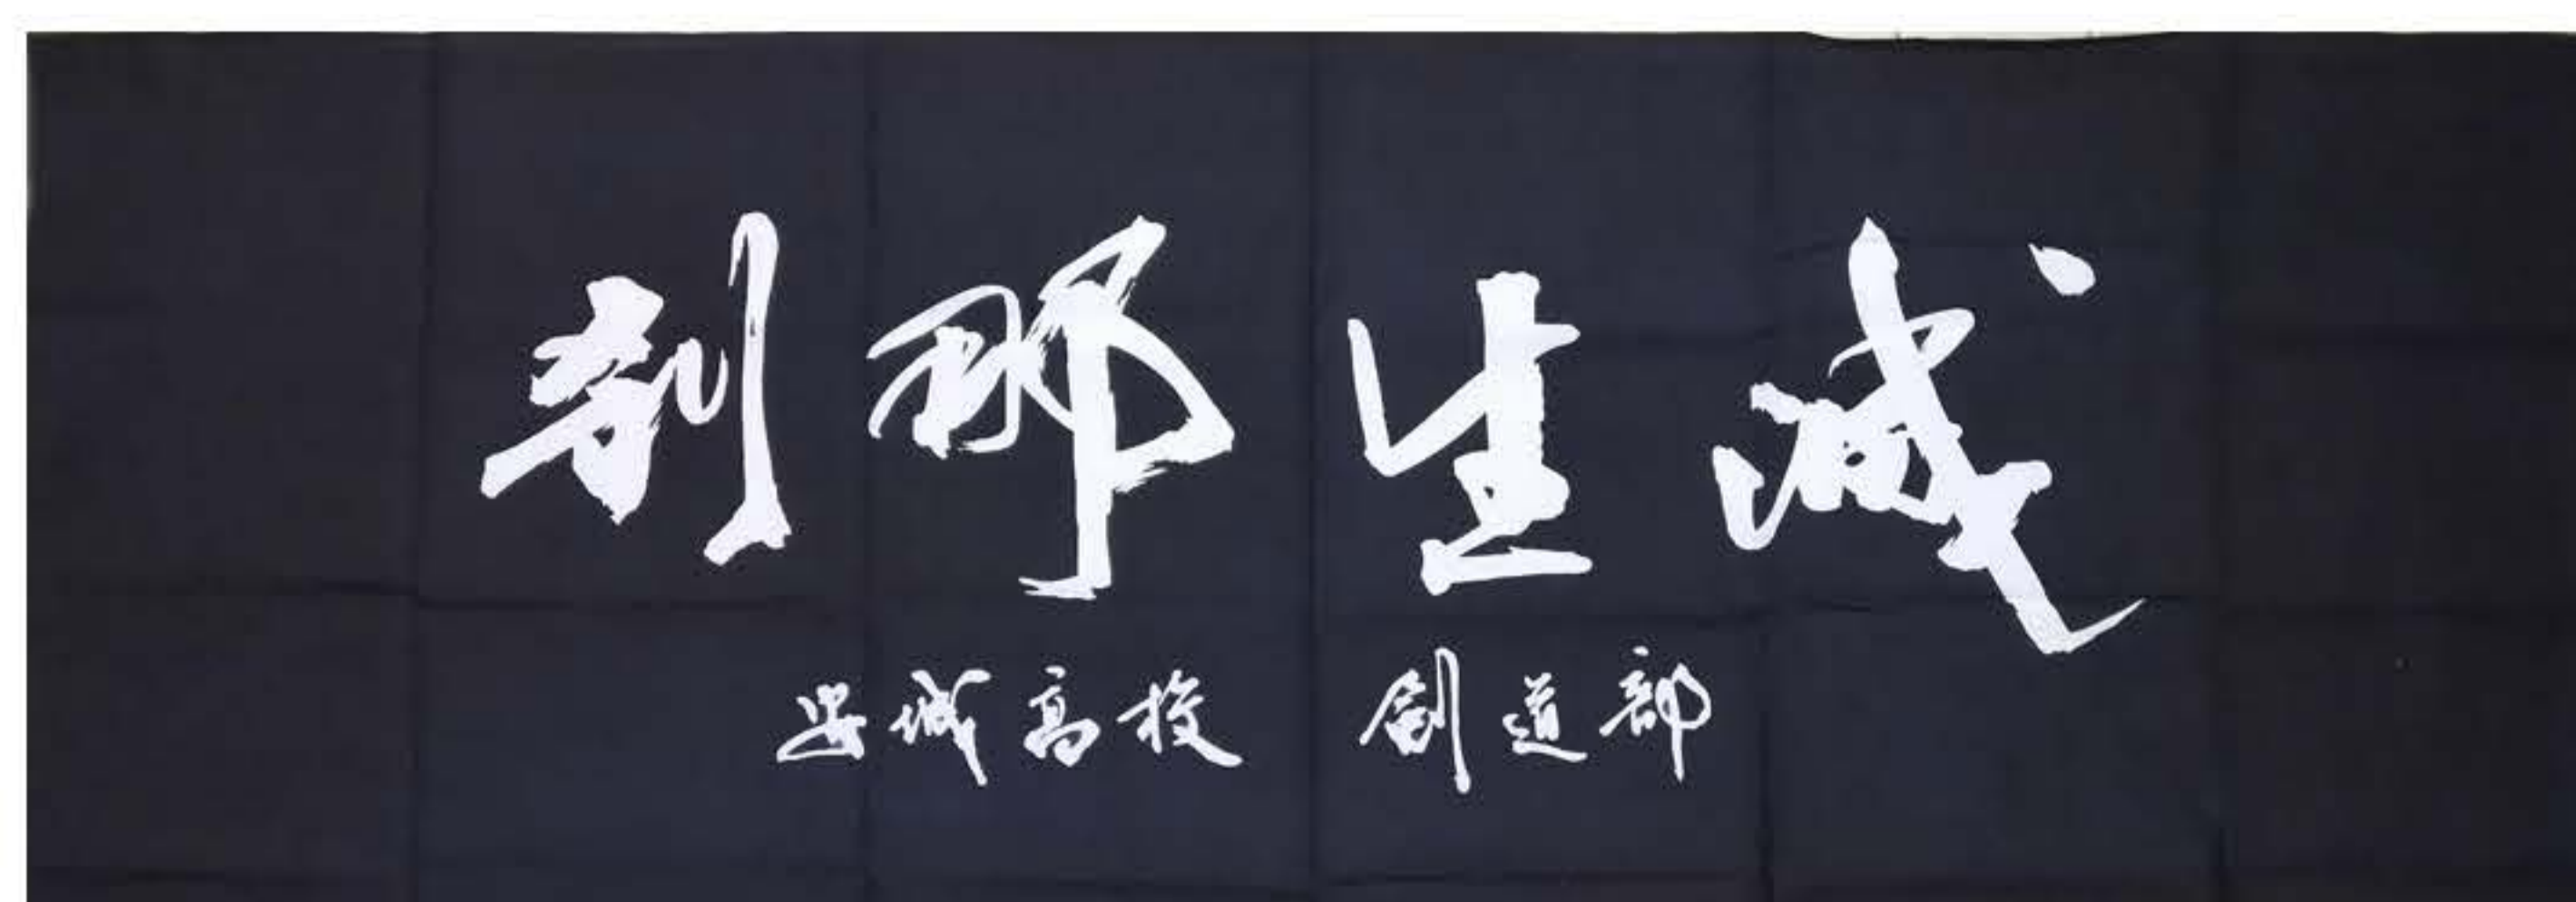 刹那生滅
安城高校 剣道部